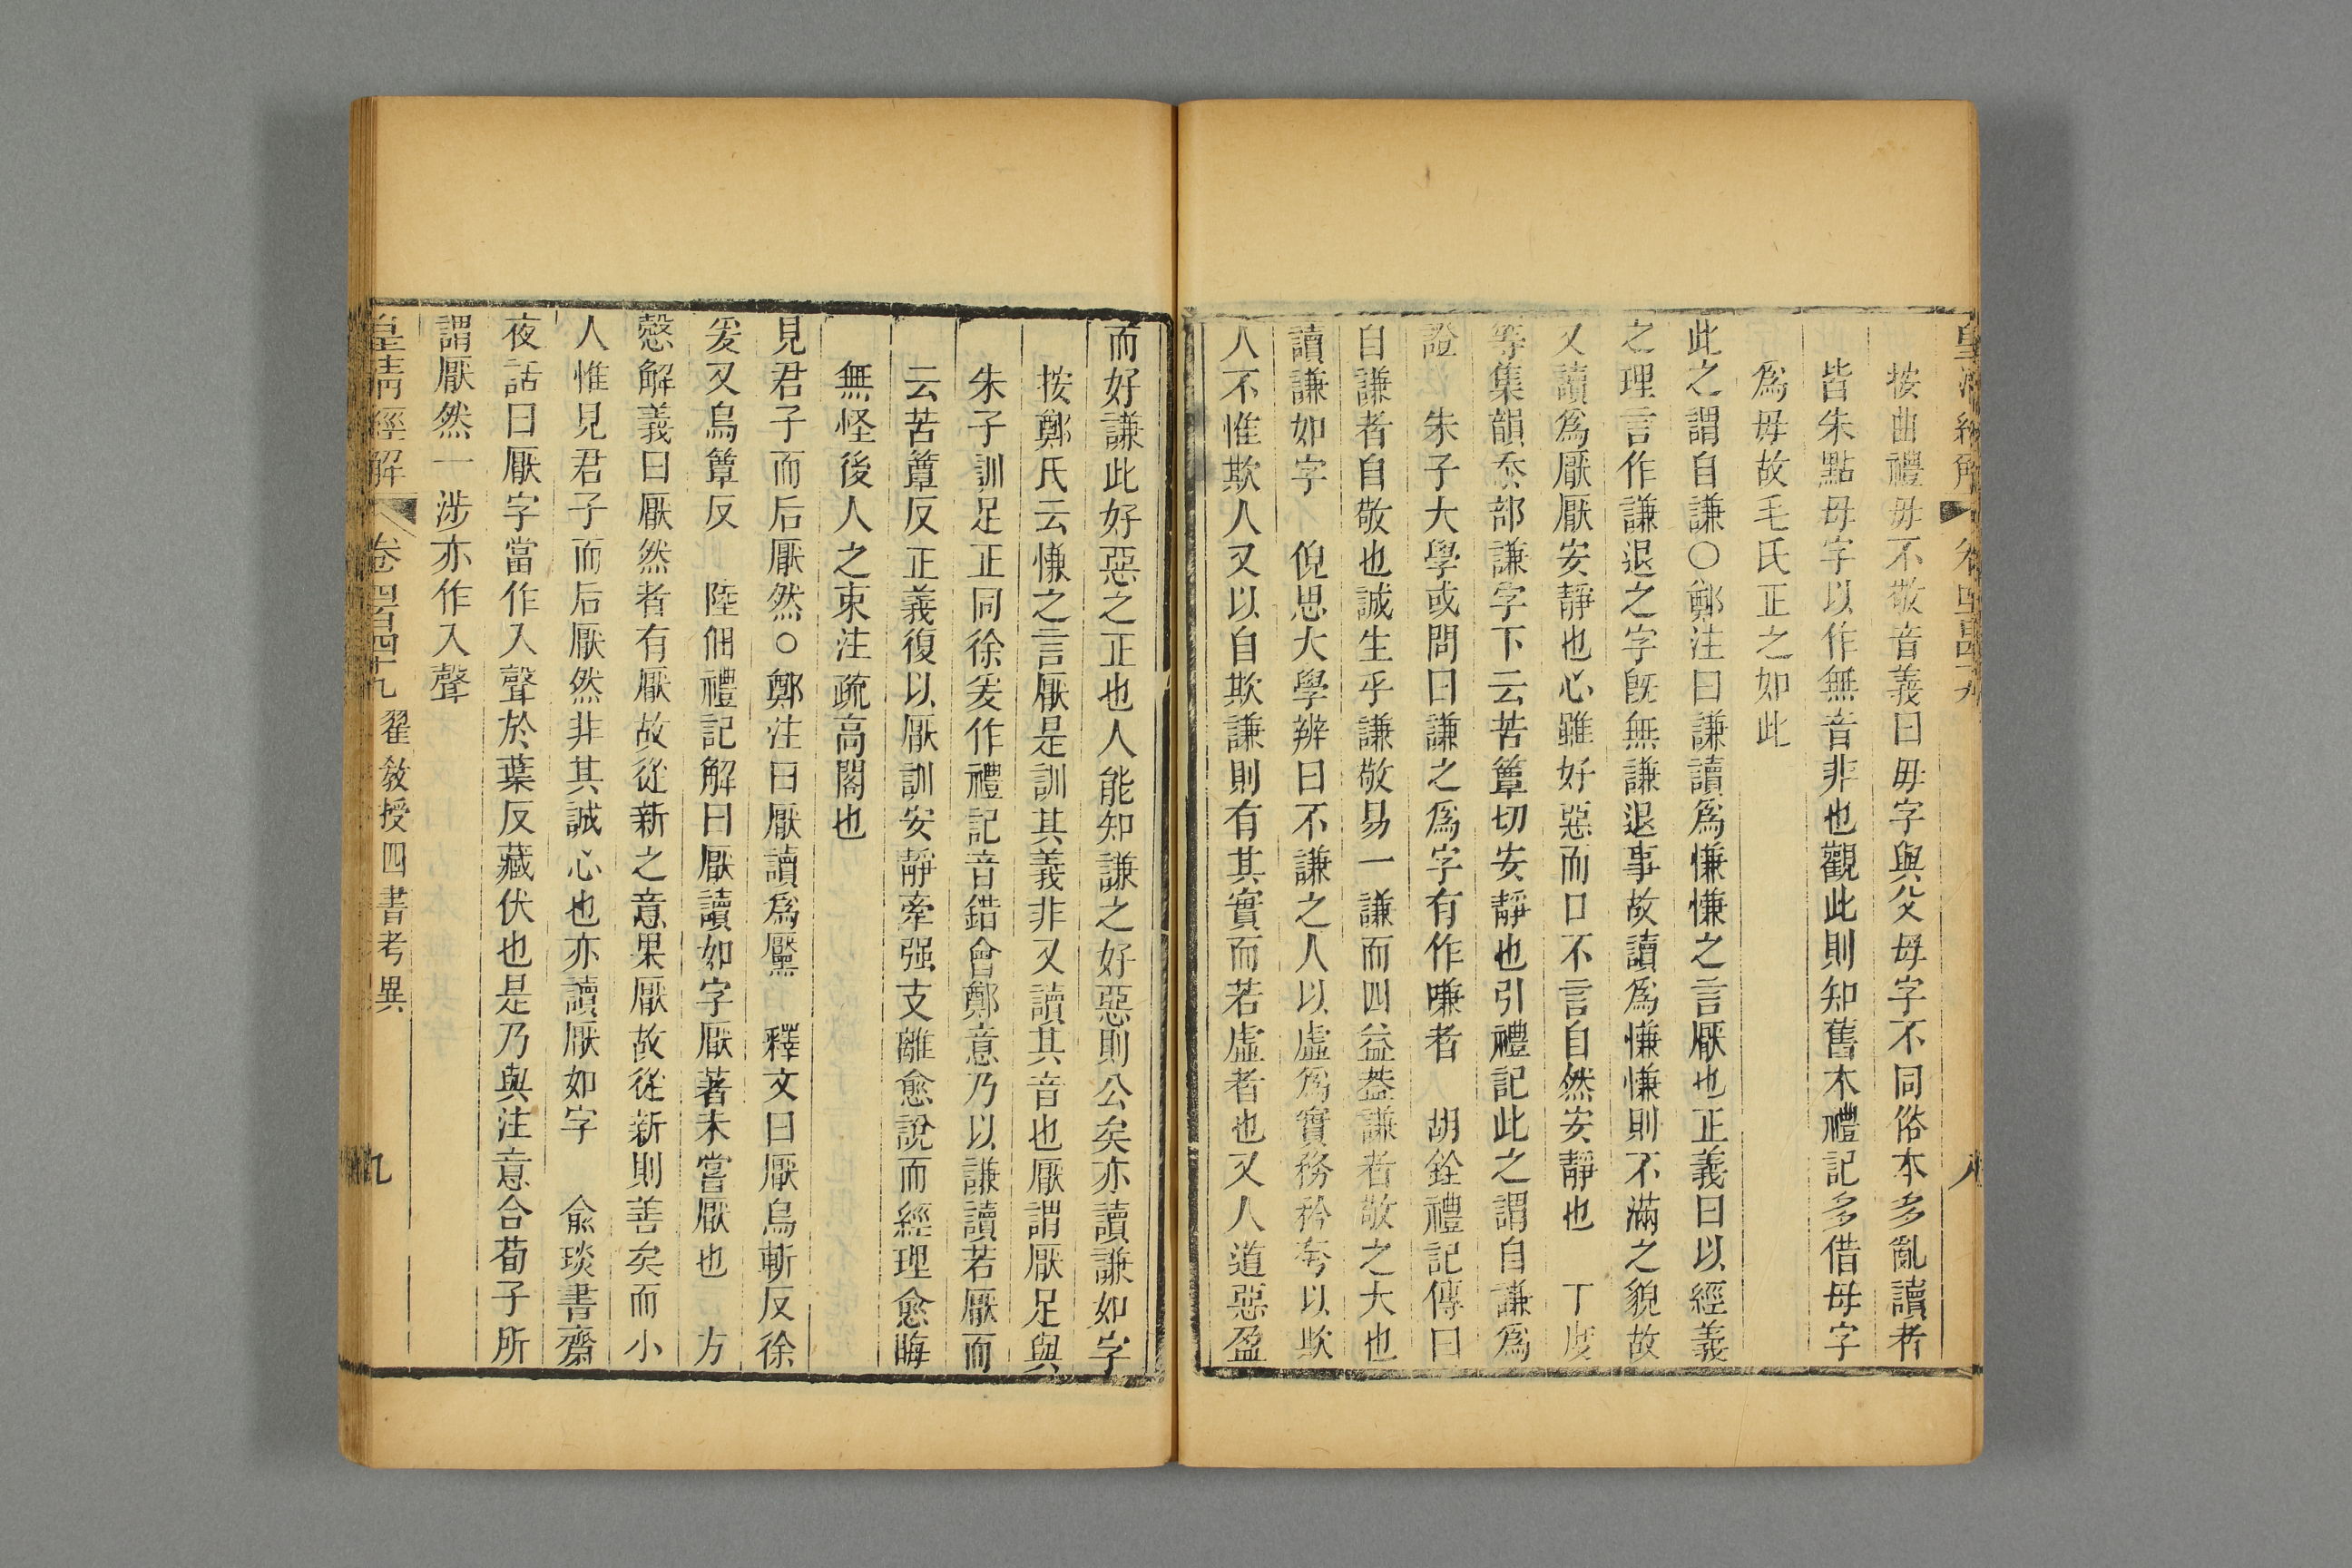 皇清經解 卷四百四十九 八
按曲禮毋不敬音義曰毋字與父母字不同俗本多亂讀者
皆朱點母字以作無音非也觀此則知舊本禮記多借母字
爲毋故毛氏正之如此
此之謂自謙○鄭注曰謙讀爲慊慊之言厭也正義曰以經義
之理言作謙退之字既無謙退事故讀爲慊慊則不滿之貌故
又讀爲厭厭安靜也心雖好惡而口不言自然安靜也 丁度
等集韻忝部謙字下云苦簟切安靜也引禮記此之謂自謙爲
證 朱子大學或問曰謙之爲字有作嗛者 胡銓禮記傳曰
自謙者自敬也誠生乎謙敬易一謙而四益葢謙者敬之大也
讀謙如字 倪思大學辨曰不謙之人以虛爲實務矜夸以欺
人不惟欺人又以自欺謙則有其實而若虛者也又人道惡盈
而好謙此好惡之正也人能知謙之好惡則公矣亦讀謙如字
按鄭氏云慊之言厭是訓其義非又讀其音也厭謂厭足與
朱子訓足正同徐爰作禮記音錯會鄭意乃以謙讀若厭而
云苦簟反正義復以厭訓安靜牽强支離愈說而經理愈晦
無怪後人之束注疏高閣也
見君子而后厭然○鄭注曰厭讀爲黶 釋文曰厭烏斬反徐
爰又烏簟反 陸佃禮記解曰厭讀如字厭著未嘗厭也 方
慤解義曰厭然者有厭故從新之意果厭故從新則善矣而小
人惟見君子而后厭然非其誠心也亦讀厭如字 兪琰書齋
夜話曰厭字當作入聲於葉反藏伏也是乃與注意合荀子所
謂厭然一涉亦作入聲
皇清經解 卷四百四十九 翟教授四書考異 九